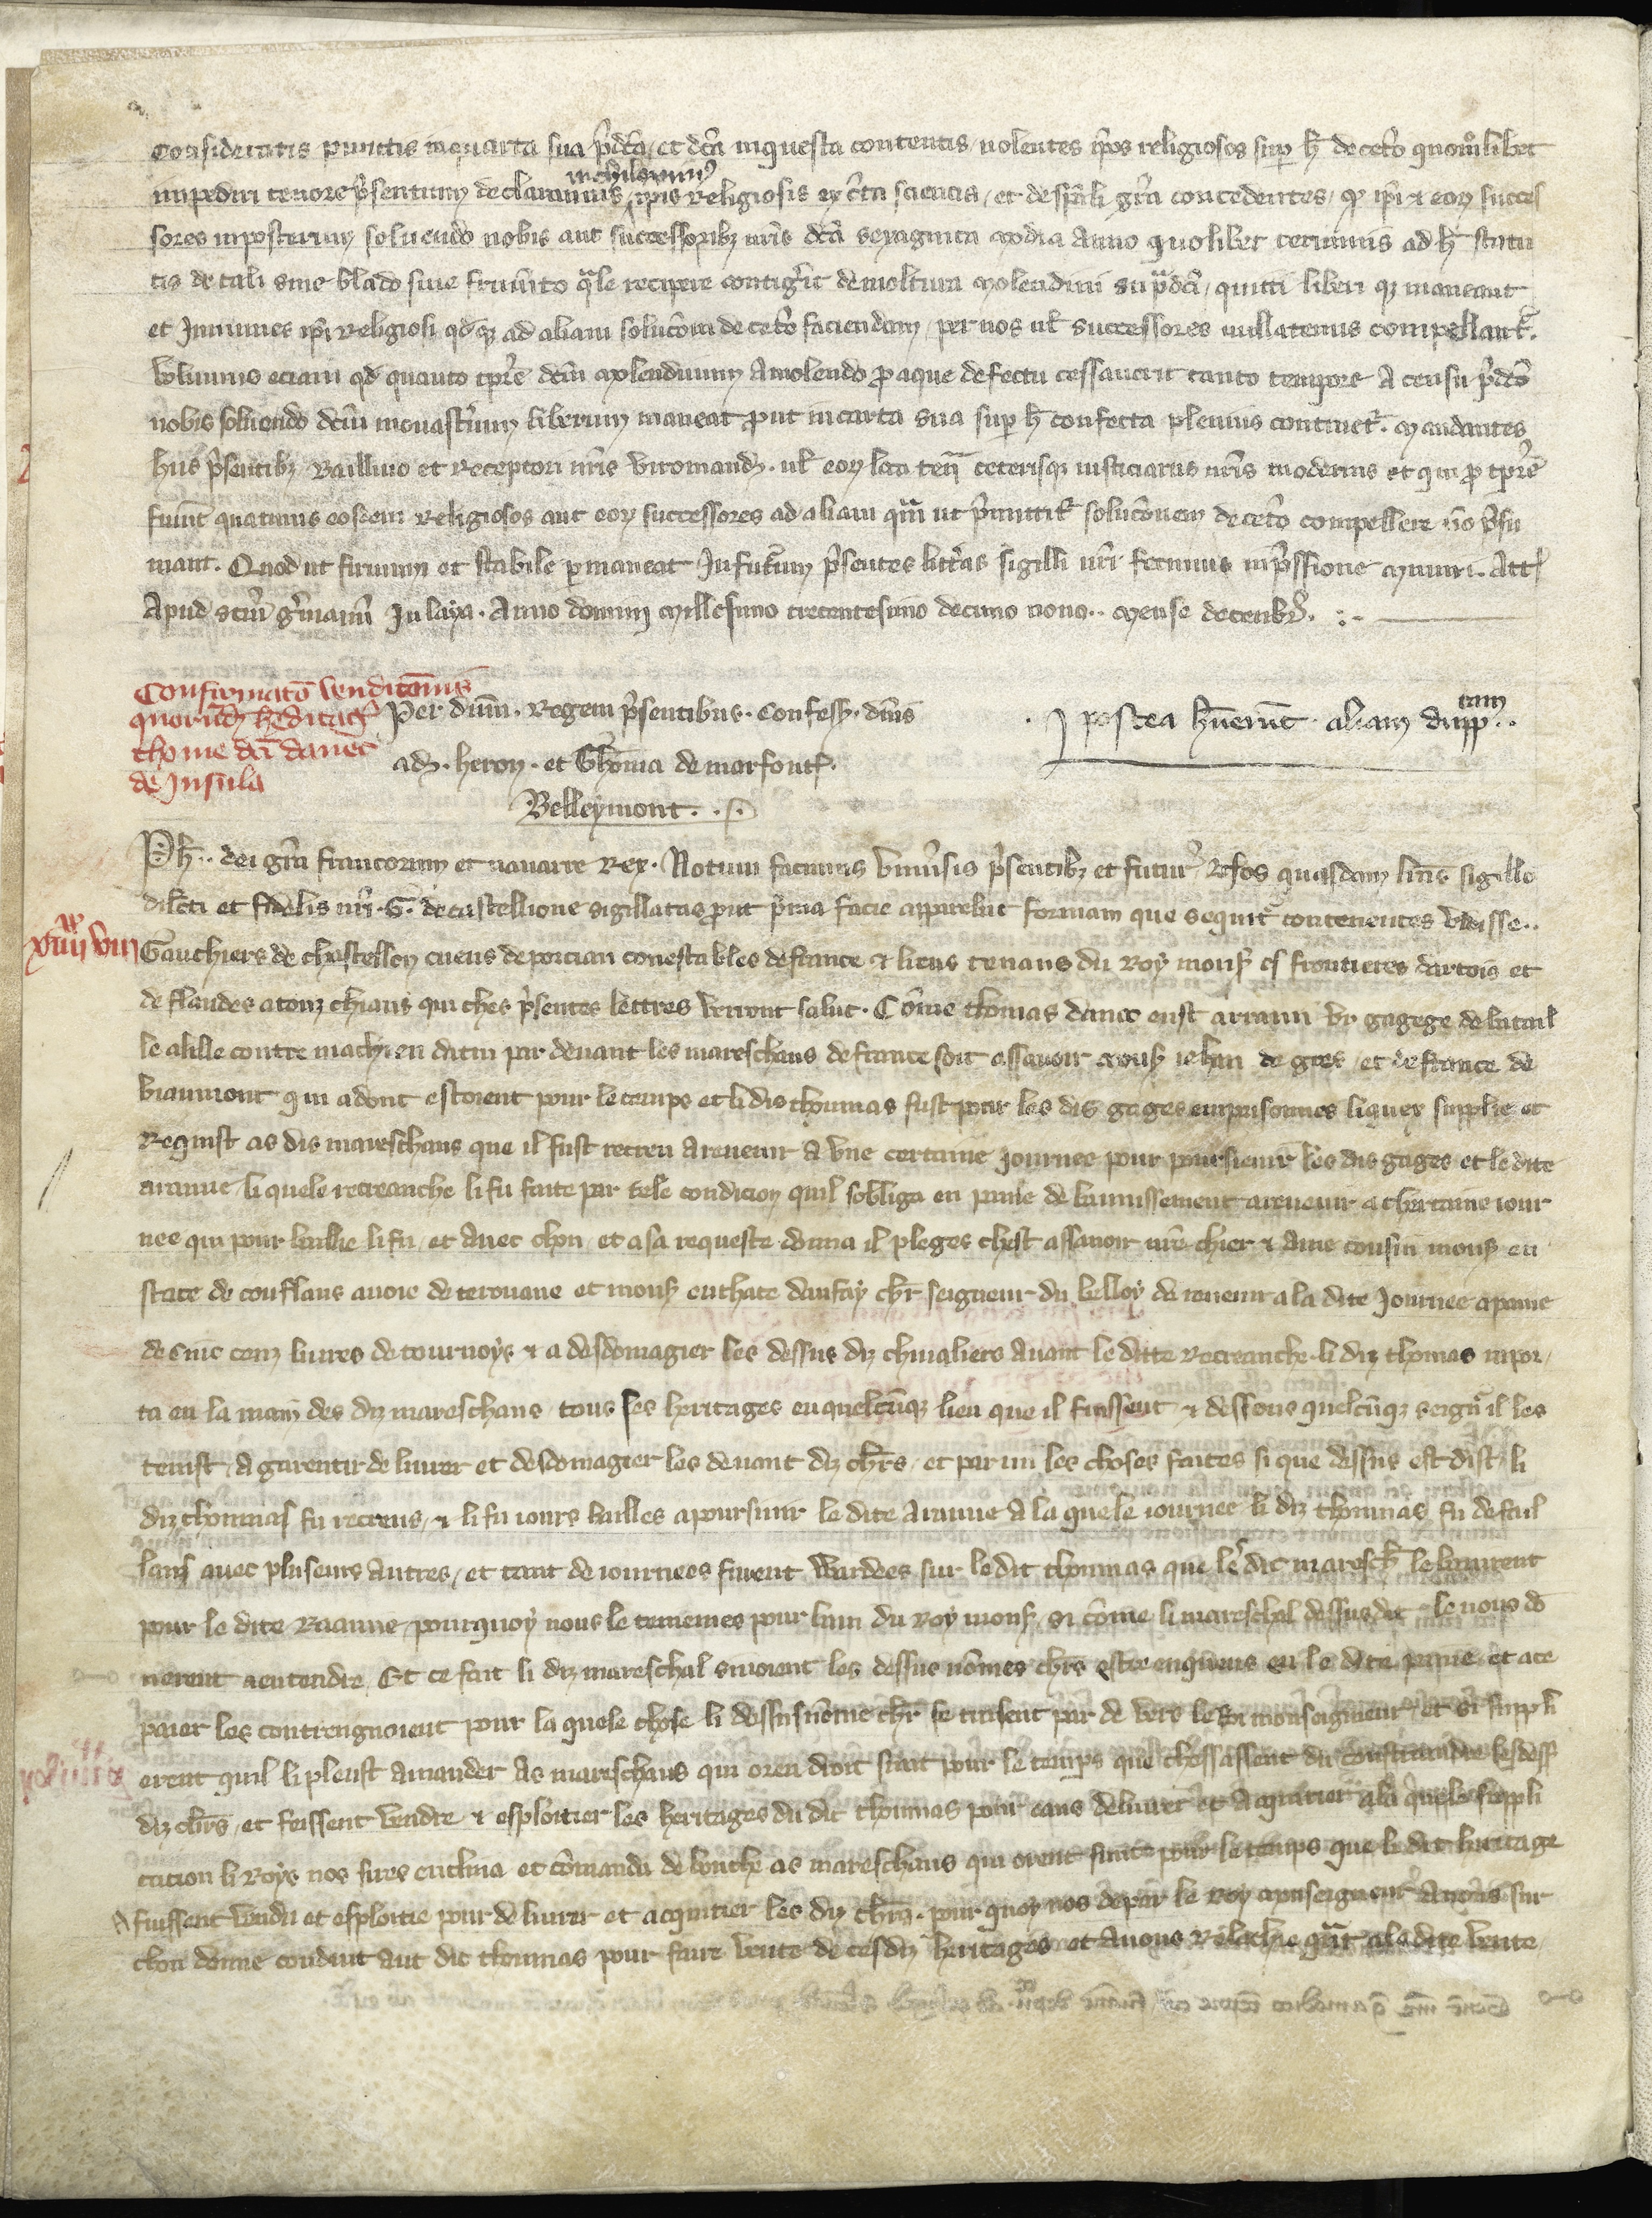 Consideratis punctis in quarta sua p̄dc̄a et dc̄a inquesta contentis nolentes ip̄os religiosos sup̱ h̄ de cet̓o quom̊libet
impediri tenore p̄sentium declaramus nichilominꝰ ip̄is religiosis ex c̄ta sciencia et de sp̄ali gr̄a concedentes ꝙ ip̄i ⁊ eoꝝ succes
sores inposterum soluendo nobis aut successoribꝫ nr̄is dc̄a sexaginta modia anno quolibet terminis ad h̄ statu
tis de tali sine blado siue frum̄to q̄le recipere contig̓it de moltura molendini sup̄dc̄i quitti liberi qꝫ maneant
et Immunes ip̄i religiosi qd̓qꝫ ad aliam soluc̄oem de cet̓o faciendam per nos ul̓ successores nullatenus compellant᷑.
Volumus eciam qd̓ quanto tp̄re dc̄m molendinum a molendo ꝓ aque defectu cessauerit tanto tempore a censu p̄dc̄o
nobis soluendo dc̄m monast̓ium liberum maneat ꝓut in carta sua sup̱ h̄ confecta plenius continet᷑. mandantes
hiis p̄sentibꝫ Bailliuo et receptori nr̄is viromanđ. ul̓ eoꝝ loca teñ ceterisqꝫ iusticiariis nr̄is modernis et qui ꝓ tp̄re
fuer̄nt quatinus eosdem religiosos aut eoꝝ successores ad aliam q̄m ut p̄mittit᷑ soluc̄onem de cet̓o compellere n̄o p̄su
mant. Quod ut firmum et stabile ꝑmaneat In fut̓um p̄sentes litt̓as sigilli nr̄i fecimus inp̄ssione muniri. Act̓
Apud sc̄m g̓manū In laya. Anno domini millesimo trecentesimo decimo nono.. mense decenbr̓.
Confirmatō vendic̄onis
quorūdā h̓editag̓
thome dc̄i dauec
de Insula
Per dn̄m. Regem p̄sentibus. Confess̓. dn̄is
adꝫ. heron. et Th̄oma de marfont̓.
Belleymont.
J postea h̄uerūt aliam dupp̱tam..
Ph̓.. dei gr̄a francorum et nauarre Rex. Notum facimus vniu̓sis p̄sentibꝫ et futur̓ Nos quasdam litt̓as sigillo
dilc̄ti et fidelis nr̄i. G. de castellione sigillatas ꝓut p̄ma facie apparebat formam que sequit᷑ continentes vidisse..
Gauchiers de chastellon cuens de porcian conestables de france ⁊ lieus tenans du Roy mons̓ es frontieres dartois et
de flandes a touz chiaus qui ches p̄sentes lettres verront salut. Cōme thomas dauec eust arrami vn gagege de batail
le a lille contre machien dattin par deuant les mareschaus de france soit assauoir mons̓ iehan de gres et de france de
biaumont qui adont estoient pour le temps et li dis thoumas fust pour les dis gages enprisonnes liquex supplie et
Requist as dis mareschaus que il fust recreu a reuenir a vne certaine journee pour poursieuir les dis gages et le dite
aramie li quele recreanche li fu faite par tele condicion quil sobliga en paine de bannissement a reuenir a chertaine iour
nee qui pour baillie li fu et auec chou et a sa requeste donna il pleges chest assauoir nr̄e chier ⁊ ame cousin mons̓ eu
stace de conflans auoie de terouane et mons̓ euthace daufay chl̄r seigneur du belloy de reuenir a la dite journee a paine
de cinc cenz liures de tournoys ⁊ a desdomagier les dessus diz chiualiers auant le ditte recreanche li diz thomas rapor
ta en la main des diz mareschaus tous ses heritages en quelcūqꝫ lieu que il fuissent ⁊ dessous quelcūqꝫ seign̄r il les
tenist a garentir deliurer et desdomagier les deuant diz chl̄rs et par mi les choses faites si que dessus est dist li
diz thoumas fu recreus ⁊ li fu iours bailles a poursiuir le dite aramie a la quele iournee li diz thoumas fu defail
lans auec pluseurs autres et tant de iournees furent wardees sur le dit thoumas que le dit maresch̓ le banirent
pour le dite Raamie pourquoy nous le tenemes pour bani du Roy mons̓ si cōme li mareschal dessus dit le nous dō
nerent a entendre Et ce fait li diz mareschal siuoient les dessus nōmes chl̄rs estre enqueus en le dite paine et a ce
paier les contrengnoient pour la quele chose li dessus nōme chl̄r se traisent par de vers le Roi monseigneur et si suppli
erent quil li pleust amander as mareschaus qui oren droit sunt pour le temps que chessassent du constraindre les dess̓
diz chl̄rs et feissent vendre ⁊ esploitier les heritages du dit thoumas pour eaus deliurer et acquitier a la quele suppli
cation li Roys nos sires enclina et cōmanda de bouche as mareschaus qui orent sunt pour le temps que le dit hiritage
fuissent vendu et esploitie pour deliurer et acquitier les diz chl̄rs. pour quoy nos de par le Roy monseigneur auons sur
chou donne conduit aut dit thoumas pour faire vente de cesdiz heritages et auons relachie q̄nt a le dite vente